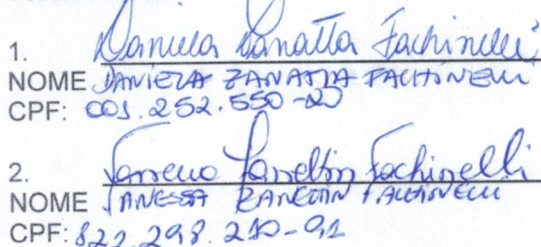 1. Daniela Zanatta Fachinelli
NOME DANIELA ZANATTA FACHINELLI
CPF: 001.252.550-20
2. Vanessa Zanettin Fachinelli
NOME VANESSA ZANETTIN FACHINELLI
CPF: 822.298.210-91